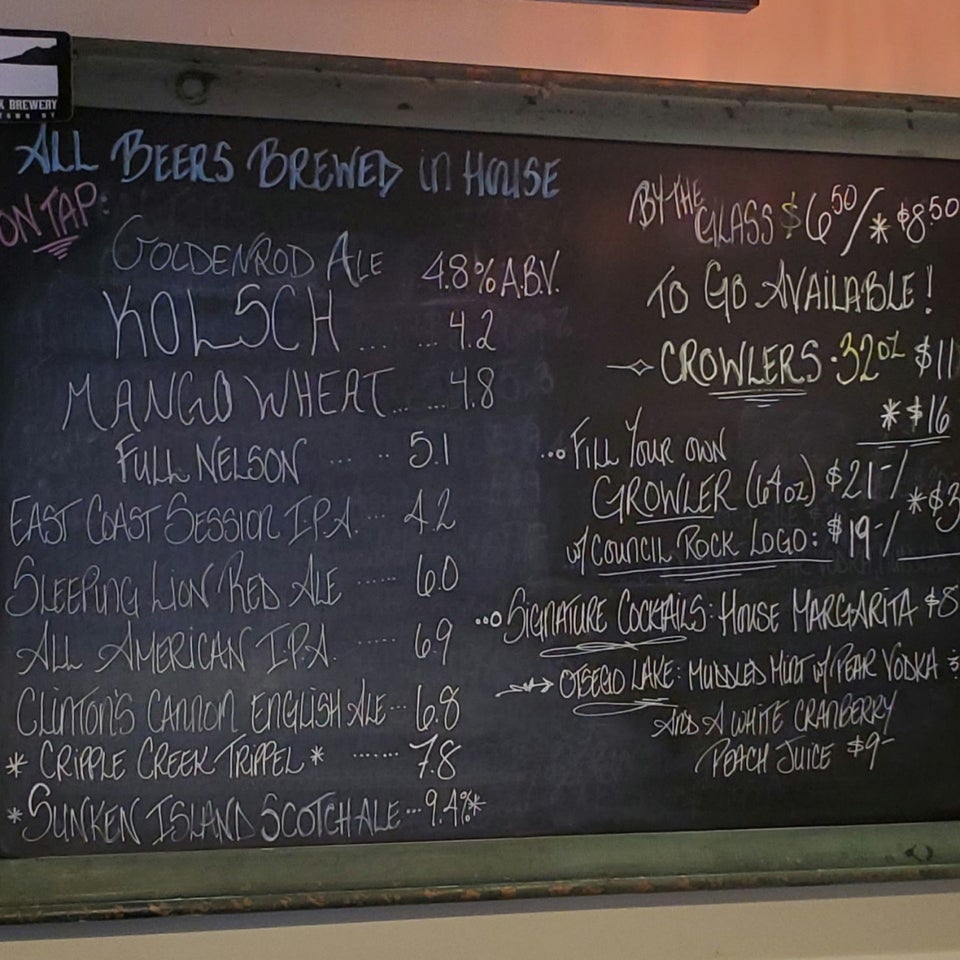 K BREWERY
ALL BEERS BREWED in HOUSE
ON TAP:
GOLDENROD ALE 4.8% A.B.V.
KOLSCH .... ... 4.2
MANGO WHEAT... ... 4.8
FULL NELSON ... .. 5.1
EAST COAST SESSION I.P.A. ... 4.2
SLEEPING LION RED ALE ...... 6.0
ALL AMERICAN I.P.A. ...... 6.9
CLINTON'S CANNON ENGLISH ALE... 6.8
* CRIPPLE CREEK TRIPPEL * ....... 7.8
*SUNKEN ISLAND SCOTCH ALE...9.4%*
BY THE GLASS $6.50/* $8.50
TO GO AVAILABLE!
CROWLERS · 32oz $11
*$16
...FILL YOUR OWN
GROWLER (64oz) $21-/ *$3
w/ COUNCIL ROCK LOGO: $19-/
...SIGNATURE COCKTAILS: HOUSE MARGARITA $8
OTSEGO LAKE: MUDDLED MINT w/ PEAR VODKA
AND A WHITE CRANBERRY
PEACH JUICE $9-